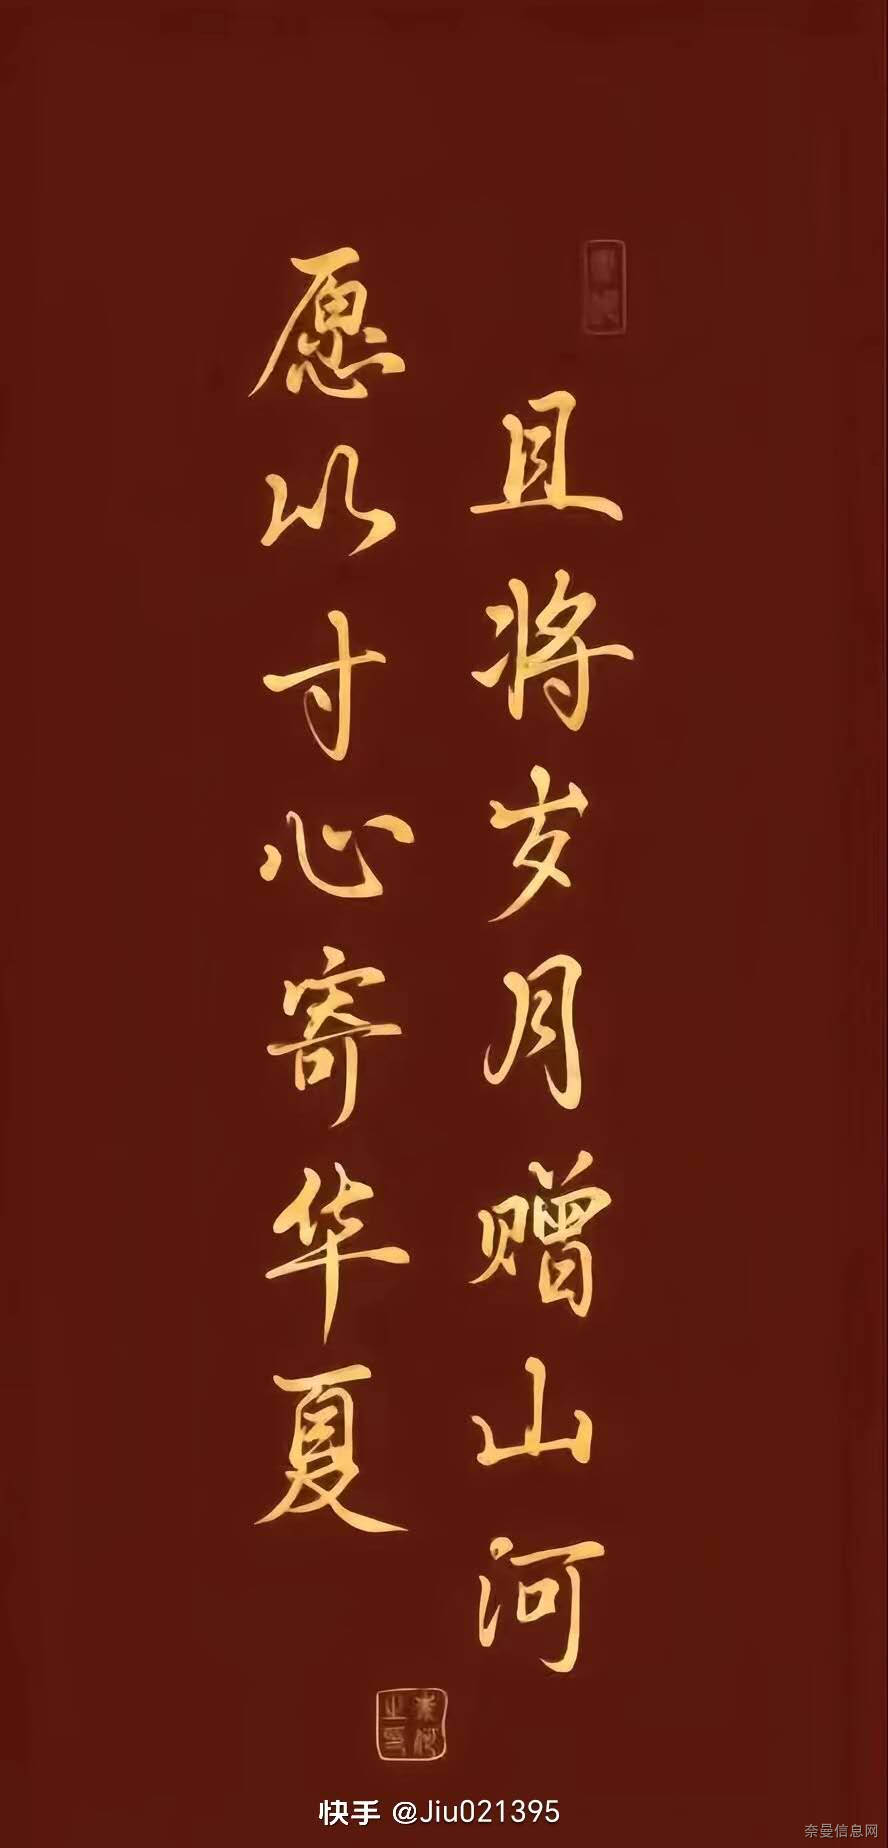 愿以寸心寄华夏
且将岁月赠山河
快手 @Jiu021395
奈曼信息网